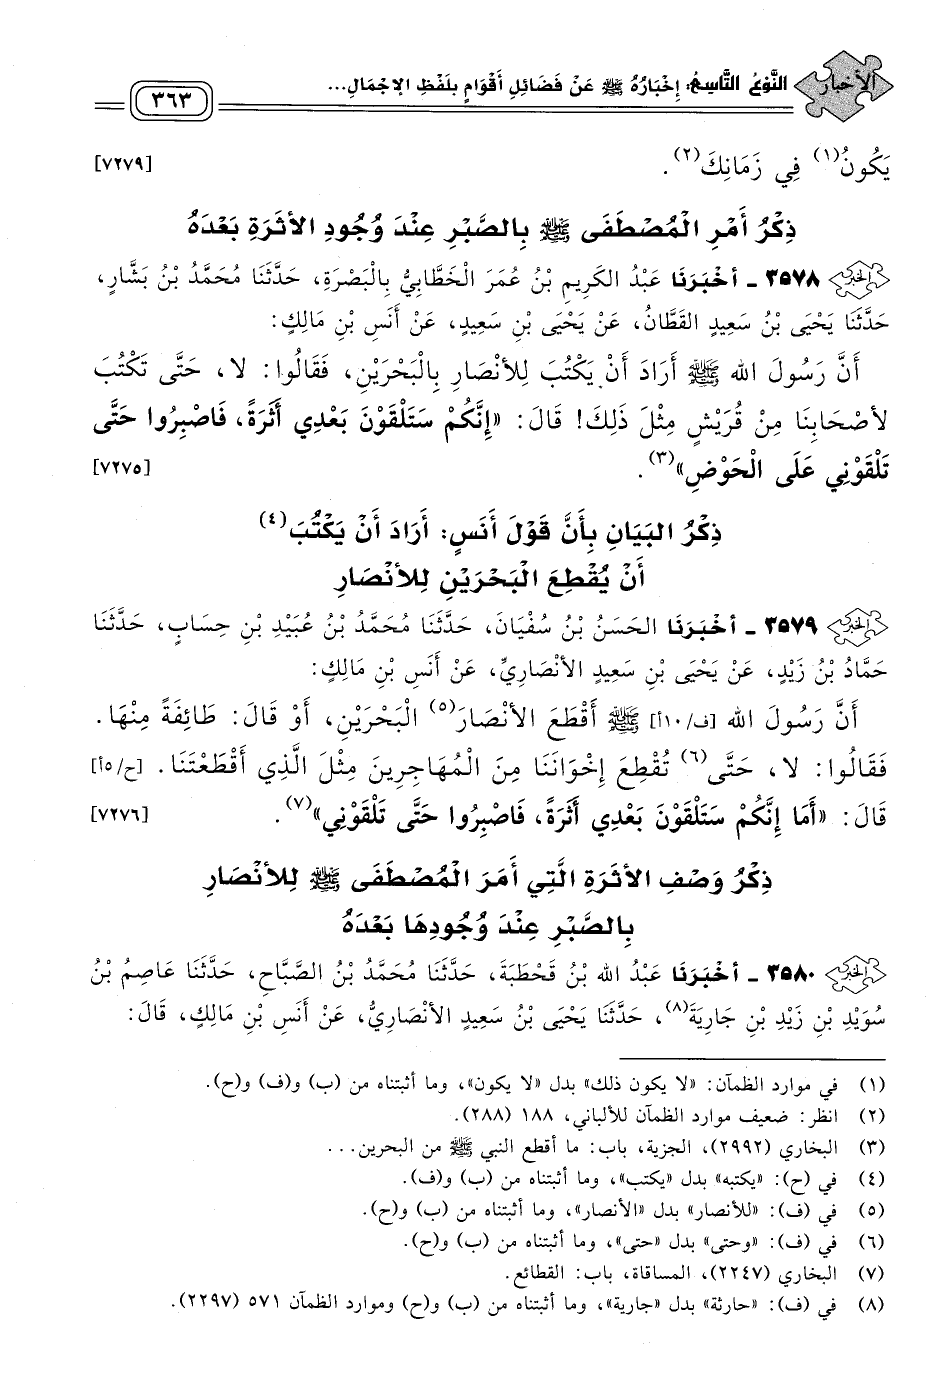 الأخبار
النَّوْعُ التَّاسِعُ: إِخْبَارُهُ ﷺ عَنْ فَضَائِلِ أَقْوَامٍ بِلَفْظِ الإِجْمَالِ...
٣٦٣
يَكُونُ(١) فِي زَمَانِكَ(٢). [٧٢٧٩]
ذِكْرُ أَمْرِ الْمُصْطَفَى ﷺ بِالصَّبْرِ عِنْدَ وُجُودِ الأَثَرَةِ بَعْدَهُ
٣٥٧٨ ـ أَخْبَرَنَا عَبْدُ الكَرِيمِ بْنُ عُمَرَ الْخَطَّابِيُّ بِالْبَصْرَةِ، حَدَّثَنَا مُحَمَّدُ بْنُ بَشَّارٍ،
حَدَّثَنَا يَحْيَى بْنُ سَعِيدٍ القَطَّانُ، عَنْ يَحْيَى بْنِ سَعِيدٍ، عَنْ أَنَسِ بْنِ مَالِكٍ:
أَنَّ رَسُولَ الله ﷺ أَرَادَ أَنْ يَكْتُبَ لِلأَنْصَارِ بِالْبَحْرَيْنِ، فَقَالُوا: لا، حَتَّى تَكْتُبَ
لأَصْحَابِنَا مِنْ قُرَيْشٍ مِثْلَ ذَلِكَ! قَالَ: «إِنَّكُمْ سَتَلْقَوْنَ بَعْدِي أَثَرَةً، فَاصْبِرُوا حَتَّى
تَلْقَوْنِي عَلَى الْحَوْضِ»(٣). [٧٢٧٥]
ذِكْرُ البَيَانِ بِأَنَّ قَوْلَ أَنَسٍ: أَرَادَ أَنْ يَكْتُبَ(٤)
أَنْ يُقْطِعَ الْبَحْرَيْنِ لِلأَنْصَارِ
٣٥٧٩ ـ أَخْبَرَنَا الحَسَنُ بْنُ سُفْيَانَ، حَدَّثَنَا مُحَمَّدُ بْنُ عُبَيْدِ بْنِ حِسَابٍ، حَدَّثَنَا
حَمَّادُ بْنُ زَيْدٍ، عَنْ يَحْيَى بْنِ سَعِيدٍ الأَنْصَارِيِّ، عَنْ أَنَسِ بْنِ مَالِكٍ:
أَنَّ رَسُولَ الله [ف/١٠أ] ﷺ أَقْطَعَ الأَنْصَارَ(٥) الْبَحْرَيْنِ، أَوْ قَالَ: طَائِفَةً مِنْهَا.
فَقَالُوا: لا، حَتَّى(٦) تُقْطِعَ إِخْوَانَنَا مِنَ الْمُهَاجِرِينَ مِثْلَ الَّذِي أَقْطَعْتَنَا. [ح/٥أ]
قَالَ: «أَمَا إِنَّكُمْ سَتَلْقَوْنَ بَعْدِي أَثَرَةً، فَاصْبِرُوا حَتَّى تَلْقَوْنِي»(٧). [٧٢٧٦]
ذِكْرُ وَصْفِ الأَثَرَةِ الَّتِي أَمَرَ الْمُصْطَفَى ﷺ لِلأَنْصَارِ
بِالصَّبْرِ عِنْدَ وُجُودِهَا بَعْدَهُ
٣٥٨٠ ـ أَخْبَرَنَا عَبْدُ الله بْنُ قَحْطَبَةَ، حَدَّثَنَا مُحَمَّدُ بْنُ الصَّبَّاحِ، حَدَّثَنَا عَاصِمُ بْنُ
سُوَيْدِ بْنِ زَيْدِ بْنِ جَارِيَةَ(٨)، حَدَّثَنَا يَحْيَى بْنُ سَعِيدٍ الأَنْصَارِيُّ، عَنْ أَنَسِ بْنِ مَالِكٍ، قَالَ:
(١) في موارد الظمآن: «لا يكون ذلك» بدل «لا يكون»، وما أثبتناه من (ب) و(ف) و(ح).
(٢) انظر: ضعيف موارد الظمآن للألباني، ١٨٨ (٢٨٨).
(٣) البخاري (٢٩٩٢)، الجزية، باب: ما أقطع النبي ﷺ من البحرين...
(٤) في (ح): «يكتبه» بدل «يكتب»، وما أثبتناه من (ب) و(ف).
(٥) في (ف): «للأنصار» بدل «الأنصار»، وما أثبتناه من (ب) و(ح).
(٦) في (ف): «وحتى» بدل «حتى»، وما أثبتناه من (ب) و(ح).
(٧) البخاري (٢٢٤٧)، المساقاة، باب: القطائع.
(٨) في (ف): «حارثة» بدل «جارية»، وما أثبتناه من (ب) و(ح) وموارد الظمآن ٥٧١ (٢٢٩٧).